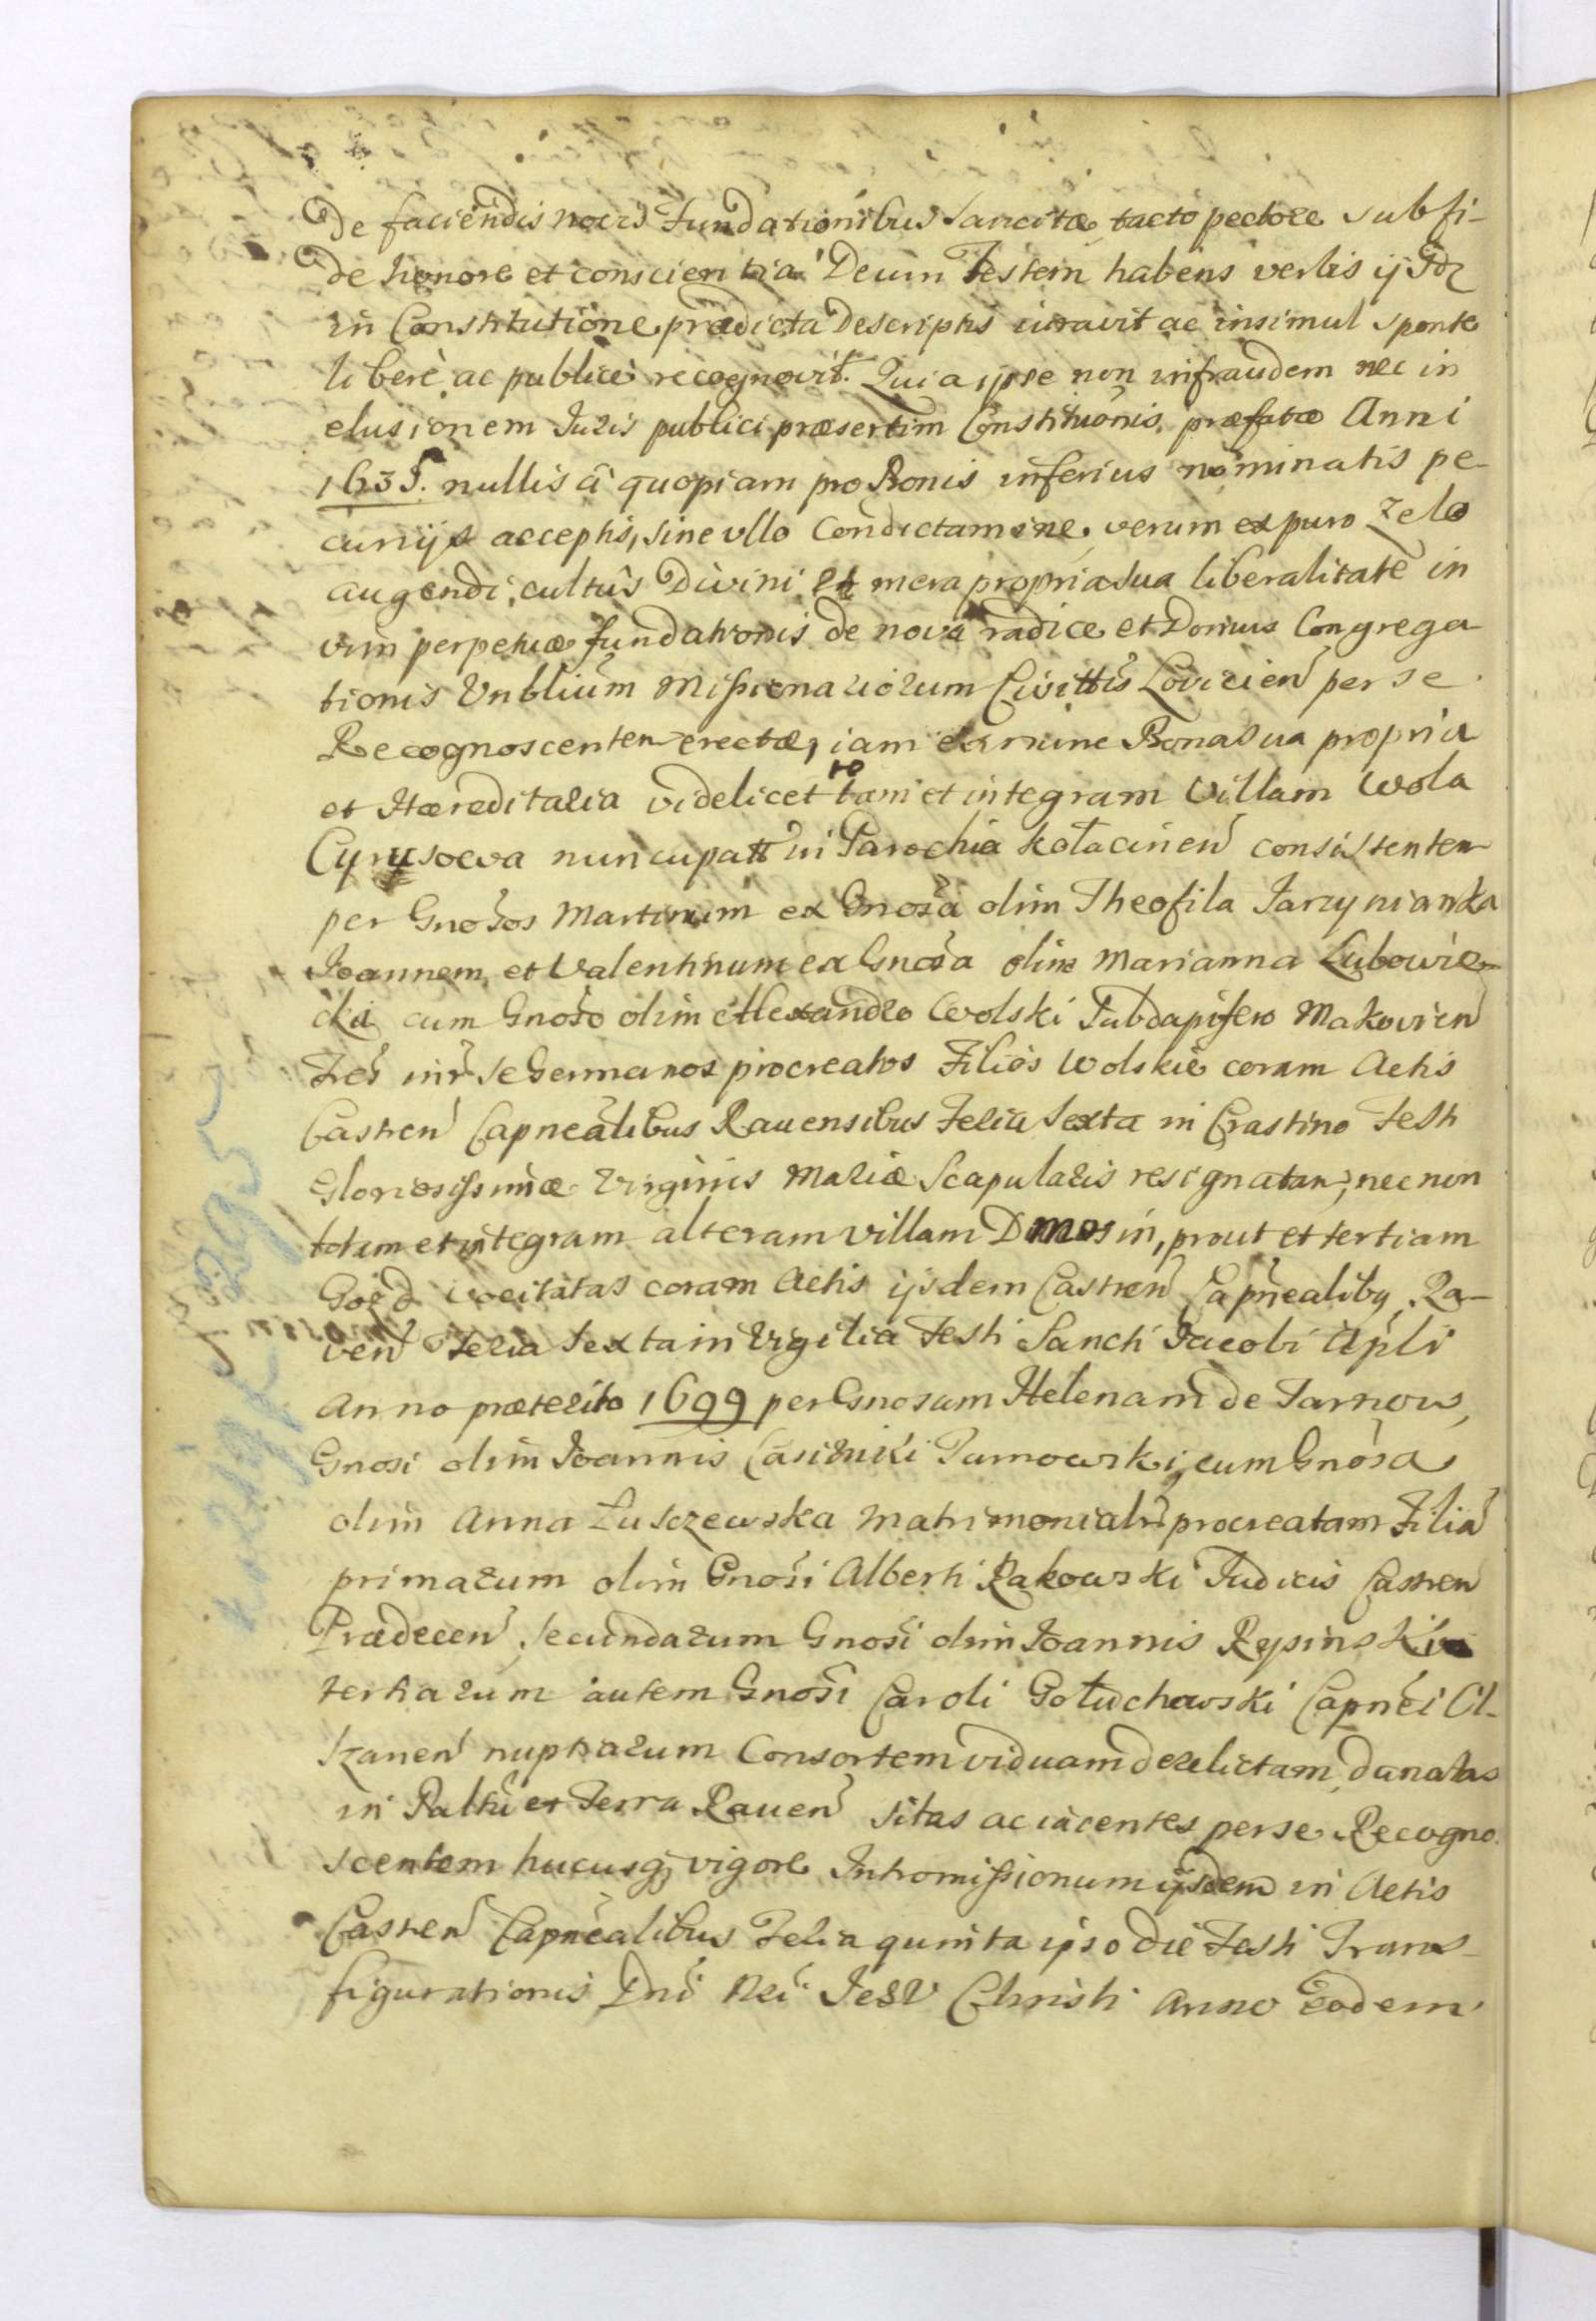 De faciendis novis Fundationibus sancitæ, tacto pectore subfi-
de honore et conscientia Deum Testem habens verbis ijsdē
in Constitutione prædicta descriptis iuravit ac insimul sponte
liberè ac publicè recognovit. Quia ipse non infraudem nec in
elusionem Juris publici præsertim Constitu͠onis præfatæ Anni
1635. nullis à quopiam pro Bonis inferius nominatis pe-
cunijs acceptis, sine ullo Condictamine, verum ex puro zelo
augendi, cultûs Divini et mera propria sua liberalitate in
vim perpetuæ fundationis de nova radice et Domus Congrega
tionis Vnblium Missionariorum Civittis Lovicien̄ per se
Recognoscentem erectæ, iam ex nunc Bona sua propria
et Hæreditaria videlicet totam et integram Villam Wola
Cyrusowa nuncupatt in Parochia kołacinen̄ consistentem
per Gnosos Martinum ex Gnosa olim Theofila Jarzynianka
Joannem, et Valentinum ex Gnosa olim Marianna Lubowie-
cka cum Gnoso olim Alexandro Wolski Subdapifero Makovien̄
tres inr̄ se Germanos procreatos Filios Wolskie coram Actis
Castren̄ Capnealibus Rauensibus Feria Sexta in Crastino Festi
Gloriosissimæ Virginis Mariæ Scapularis resignatam, nec non
totam et integram alteram villam Dmosin, prout et tertiam
vocitatas coram Actis ijsdem Castren̄ Capnealibꝯ Ra-
ven̄ Feria Sexta in Vigilia Festi Sancti Jacobi Apli
Anno præterito 1699 per Gnosam Helenam de Tarnow,
Gnosi olim Joannis Casimiri Tarnowski, cum Gnosa
olim Anna Łusczewska matrimonialr̄ procreatam Filiā
primarum olim Gnosi Alberti Rakowski Judicis Castren̄
Prædecen̄, secundarum Gnosi olim Joannis Rypinski
tertiarum autem Gnosi Caroli Gołuchowski Capnei Ol-
kzanen̄ nuptiarum Consortem viduam derelictam, donatas
in Palttu et Terra Rauen̄ sitas ac iacentes per se Recogno
scentem hucusq; vigore Intromissionum ijsdem in Actis
Castren̄ Capnealibus Feria quinta ipso die Festi Trans-
figurationis Dni Nri JesV Christi Anno Eodem